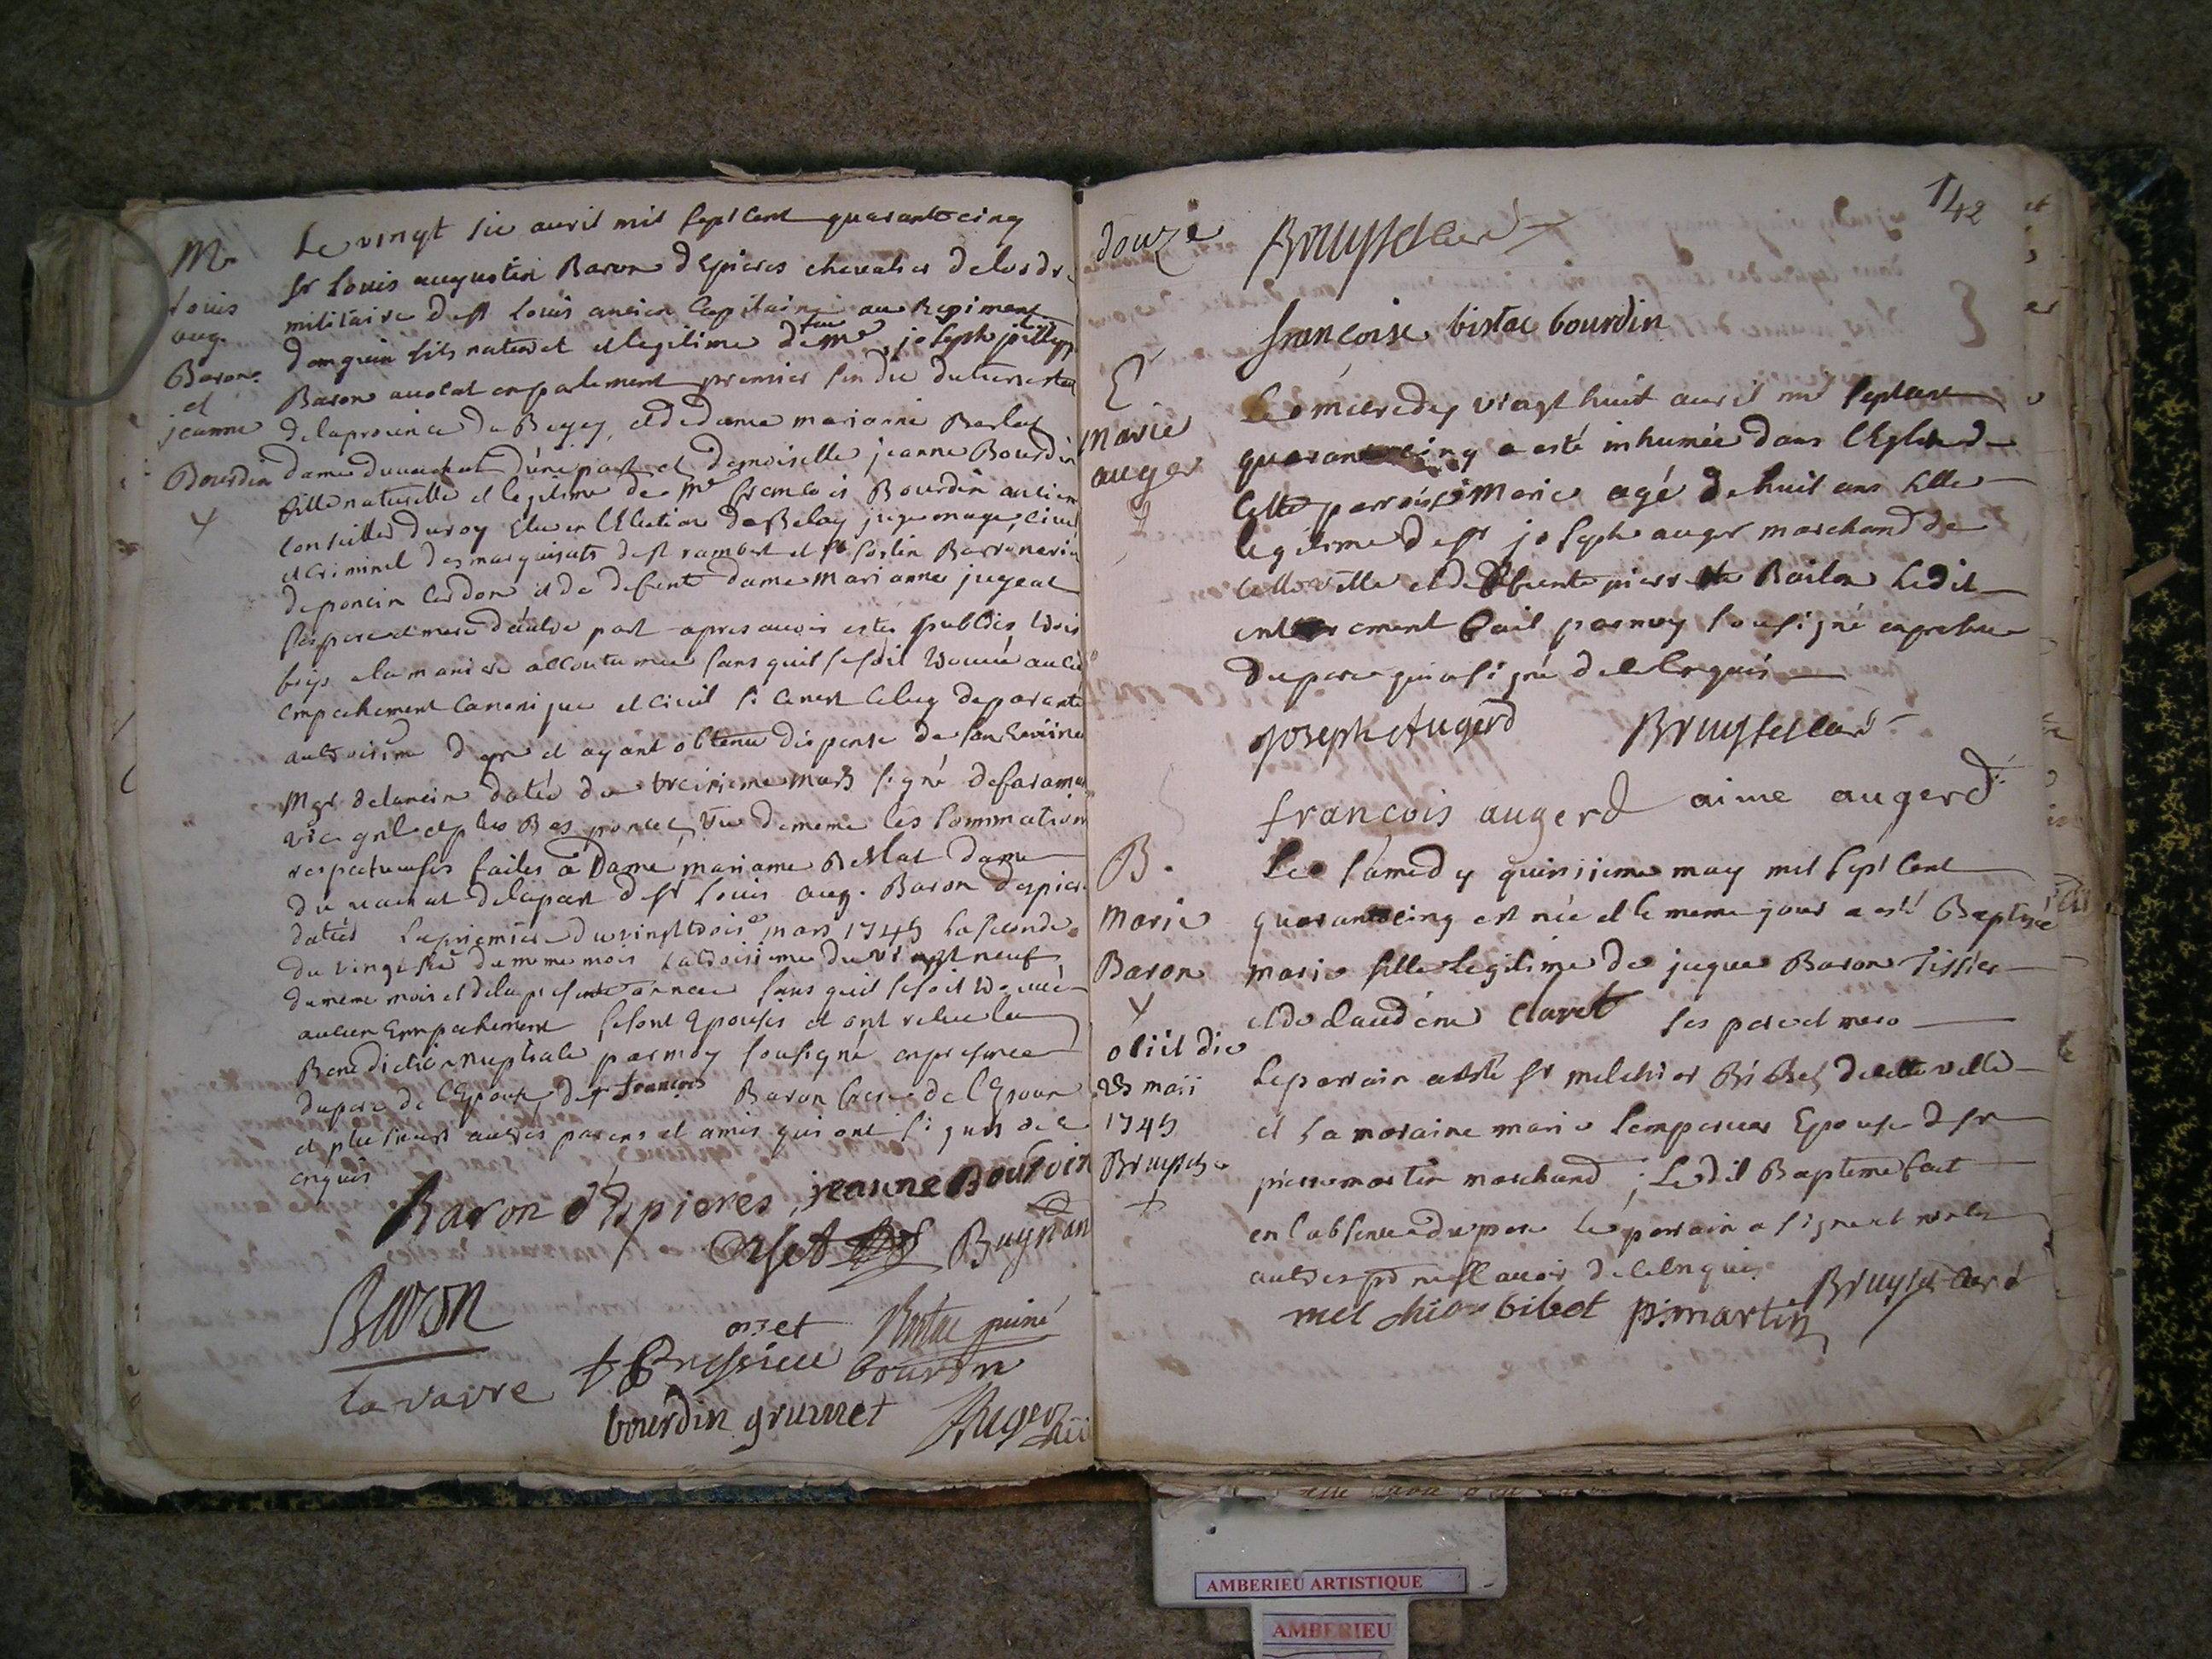 M.
Louis
aug.
Baron
et
jeanne
Bourdin
Le vingt six avril mil sept cent quarante cinq
sr Louis augustin Baron d'Epieres chevalier de lordre
militaire de st Louis ancien Capitaine au Regiment
danguin fils naturel et legitime de feu me joseph
Baron avocat en parlement premier sindic du tiers etat
de la province de Bugey, et de dame marianne
dame du d'une part et demoiselle jeanne Bourdin
fille naturelle et legitime de me francois Bourdin ancien
Conseiller du roy Eleu en l'Election de Belay juge mage, civil
et criminel des marquisats de st rambert et st Baronnerie
de poncin Cerdon et de defunte dame marianne jugeat
ses pere et mere d'autre part apres avoir estés publiés trois
fois a la maniere accoutumée sans quil se soit trouvé aucun
empechement canonique et civil si ce nest celuy de parenté
au troisieme degre et ayant obtenu dispense de
Mgr datée du treizieme mars signé
vic gnl et plus Bas vu de meme les sommations
respectueuses faites à Dame marianne dame
du de la part de sr Louis aug. Baron
datées La premiere du vingt trois mars 1745 La seconde
du vingt six du meme mois La troisieme du vingt neuf
du meme mois et de la presente année sans quil se soit trouvé
aucun Empechement se sont Epousés et ont receu la
Benediction nuptiale par moy sousigné en presence
du pere de l'Epouse, de sr francois Baron frere de l'Epoux
et plusieurs autres parens et amis qui ont signés de ce
enquis
Baron d'Espieres jeanne Bourdin
orset Bugnan
Baron
orset puiné
la vavre bourdin
bourdin grumet
douze
142
françoise bistac bourdin
Marie
auger
Le mercredy vingt huit avril mil sept cent
quarante cinq a esté inhumée dans l'Eglise de
cette parroisse Marie agé de huit ans fille
legitime de sr joseph auger marchand de
cette ville et de defunte pierrette Bailon Ledit
enterement fait par moy sousigné en presence
du pere qui a signé de ce Enquis
joseph Augerd
francois augerd aimé augerd
B.
Marie
Baron
obiit die
23 maii
1745
Le samedy quinzieme may mil sept cent
quarante cinq est née et le meme jour a esté Baptisée
marie fille legitime de jaques Baron Tissier
et de claudine Clavet ses pere et mere
Le parrain a esté sr melchior Bibet de cette ville
et La maraine marie Lempereur Epouse de sr
pierre martin marchand ; Ledit Bapteme fait
en l'absence du pere le parrain a signé et
autres de ce Enquis
melchior bibet p. martin
AMBERIEU ARTISTIQUE
AMBERIEU